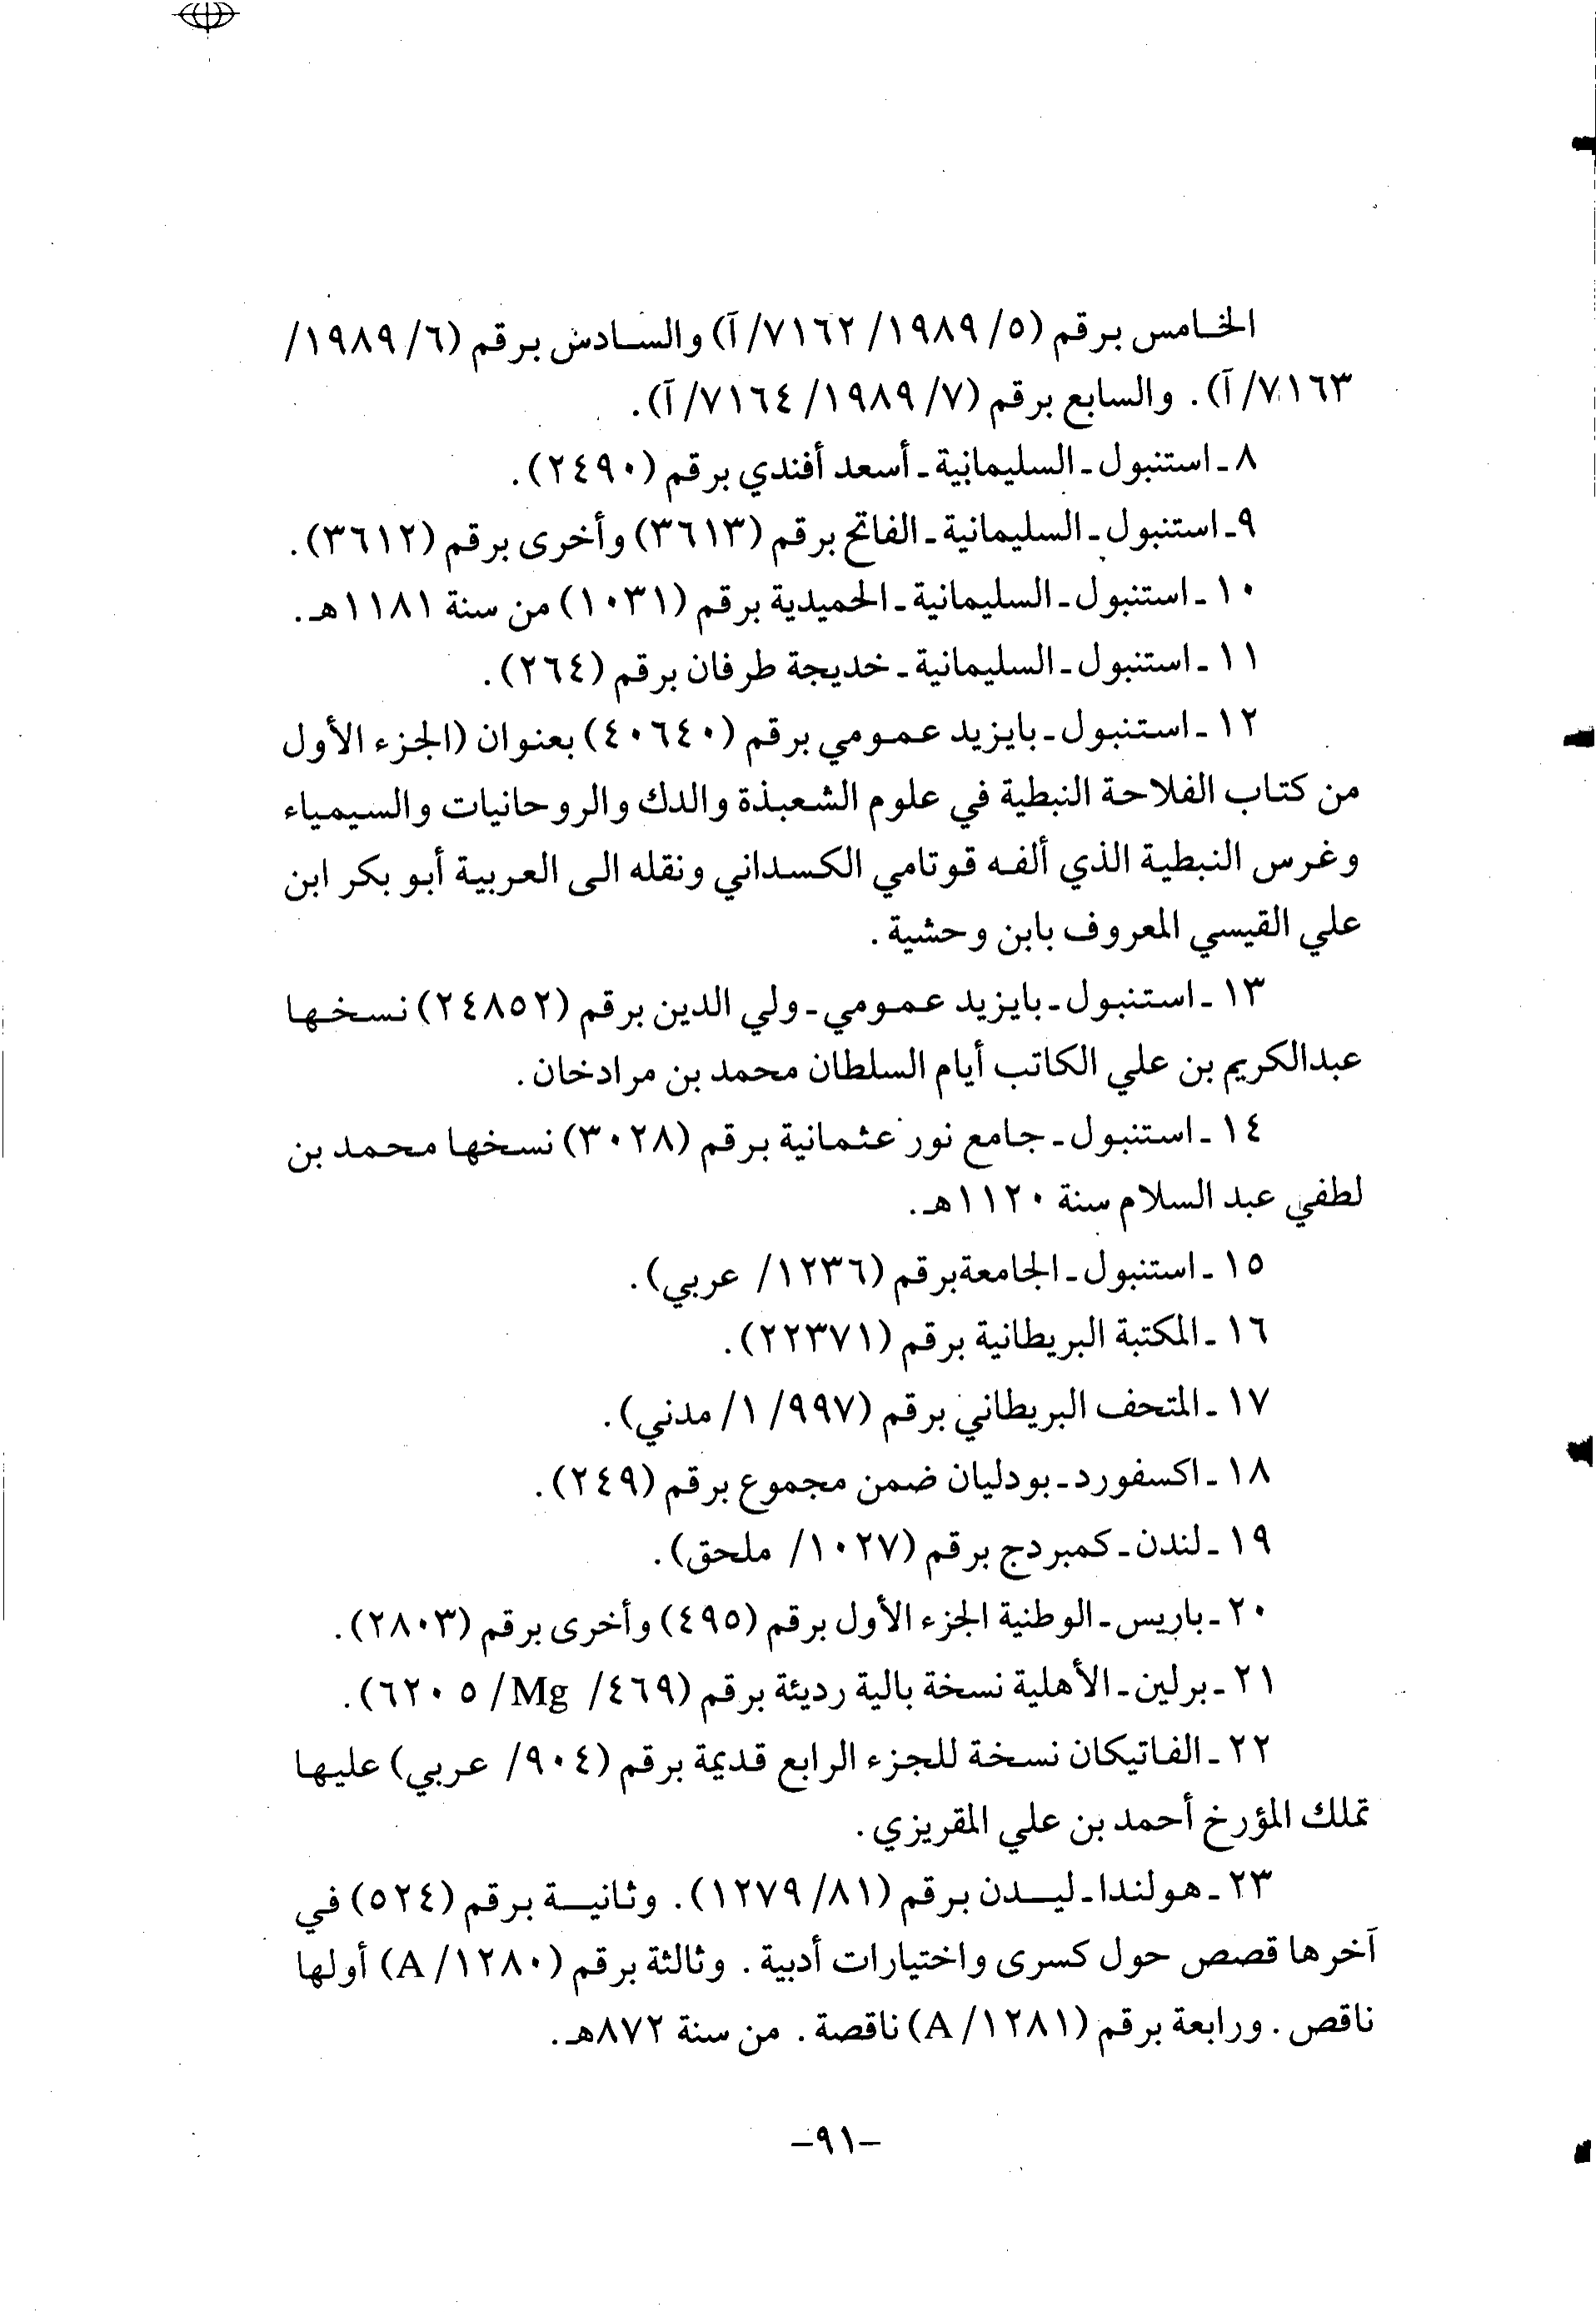 الخامس برقم (٥/ ١٩٨٩/ ٧١٦٢/ آ) والسادس برقم (٦/ ١٩٨٩/
٧١٦٣/ آ). والسابع برقم (٧/ ١٩٨٩/ ٧١٦٤/ آ).
٨ ـ استنبول ـ السليمانية ـ أسعد أفندي برقم (٢٤٩٠).
٩ ـ استنبول ـ السليمانية ـ الفاتح برقم (٣٦١٣) وأخرى برقم (٣٦١٢).
١٠ ـ استنبول ـ السليمانية ـ الحميدية برقم (١٠٣١) من سنة ١١٨١هـ.
١١ ـ استنبول ـ السليمانية ـ خديجة طرفان برقم (٢٦٤).
١٢ ـ استنبول ـ بايزيد عمومي برقم (٤٠٦٤٠) بعنوان (الجزء الأول
من كتاب الفلاحة النبطية في علوم الشعبذة والدك والروحانيات والسيمياء
وغرس النبطية الذي ألفه قوتامي الكسداني ونقله الى العربية أبو بكر ابن
علي القيسي المعروف بابن وحشية.
١٣ ـ استنبول ـ بايزيد عمومي ـ ولي الدين برقم (٢٤٨٥٢) نسخها
عبدالكريم بن علي الكاتب أيام السلطان محمد بن مرادخان.
١٤ ـ استنبول ـ جامع نور عثمانية برقم (٣٠٢٨) نسخها محمد بن
لطفي عبد السلام سنة ١١٢٠هـ.
١٥ ـ استنبول ـ الجامعة برقم (١٢٣٦/ عربي).
١٦ ـ المكتبة البريطانية برقم (٢٢٣٧١).
١٧ ـ المتحف البريطاني برقم (٩٩٧/ ١/ مدني).
١٨ ـ اكسفورد ـ بودليان ضمن مجموع برقم (٢٤٩).
١٩ ـ لندن ـ كمبردج برقم (١٠٢٧/ ملحق).
٢٠ ـ باريس ـ الوطنية الجزء الأول برقم (٤٩٥) وأخرى برقم (٢٨٠٣).
٢١ ـ برلين ـ الأهلية نسخة بالية رديئة برقم (٤٦٩/ Mg/ ٦٢٠٥).
٢٢ ـ الفاتيكان نسخة للجزء الرابع قديمة برقم (٩٠٤/ عربي) عليها
تملك المؤرخ أحمد بن علي المقريزي.
٢٣ ـ هولندا ـ ليدن برقم (٨١/ ١٢٧٩). وثانية برقم (٥٢٤) في
آخرها قصص حول كسرى واختيارات أدبية. وثالثة برقم (١٢٨٠/ A) أولها
ناقص. ورابعة برقم (١٢٨١/ A) ناقصة. من سنة ٨٧٢هـ.
–٩١–